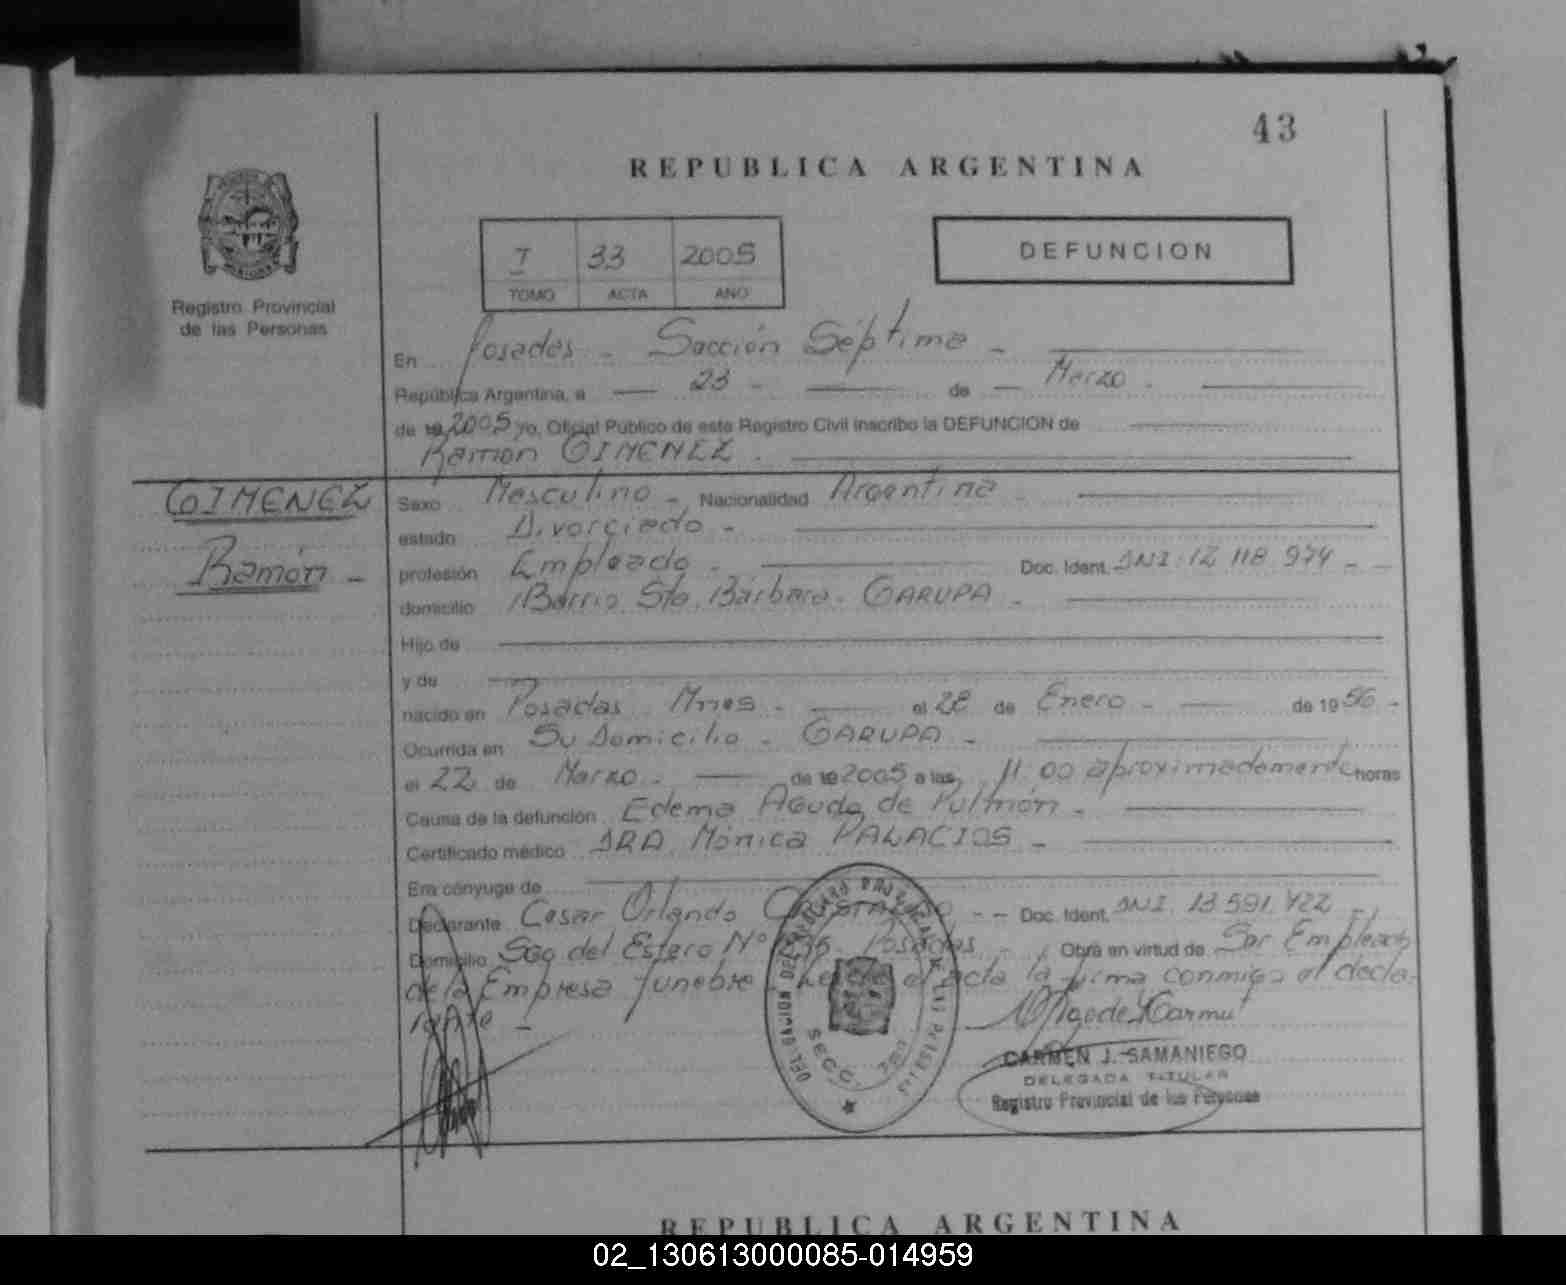 43
REPUBLICA ARGENTINA
I 33 2005
TOMO ACTA AÑO
DEFUNCION
Registro Provincial
de las Personas
En Posadas - Sección Séptima -
República Argentina, a 23 - de Marzo -
de 19 2005 yo, Oficial Público de este Registro Civil inscribo la DEFUNCION de
Ramon GIMENEZ -
GIMENEZ
Ramón -
Sexo Masculino - Nacionalidad Argentina -
estado Divorciado -
profesión Empleado - Doc. Ident. DNI. 12 118 974 - -
domicilio Barrio Sta. Bárbara - GARUPA -
Hijo de
y de
nacido en Posadas Mnes - el 28 de Enero - de 19 56 -
Ocurrida en Su Domicilio - GARUPA -
el 22 de Marzo - de 19 2005 a las 11 00 aproximadamente horas
Causa de la defunción Edema Agudo de Pulmón -
Certificado médico DRA Mónica PALACIOS -
Era cónyuge de
Declarante Cesar Orlando - - Doc. Ident. DNI. 13 591 422 -
Domicilio Sgo del Estero Nº Posadas - Obra en virtud de Ser Empleado
de la Empresa funebre - el acta la firma conmigo el decla-
rante -
DELEGACION DEL REGISTRO PROVINCIAL DE LAS PERSONAS
SECC. 7ma
CARMEN J. SAMANIEGO
DELEGADA TITULAR
Registro Provincial de las Personas
REPUBLICA ARGENTINA
02_130613000085-014959